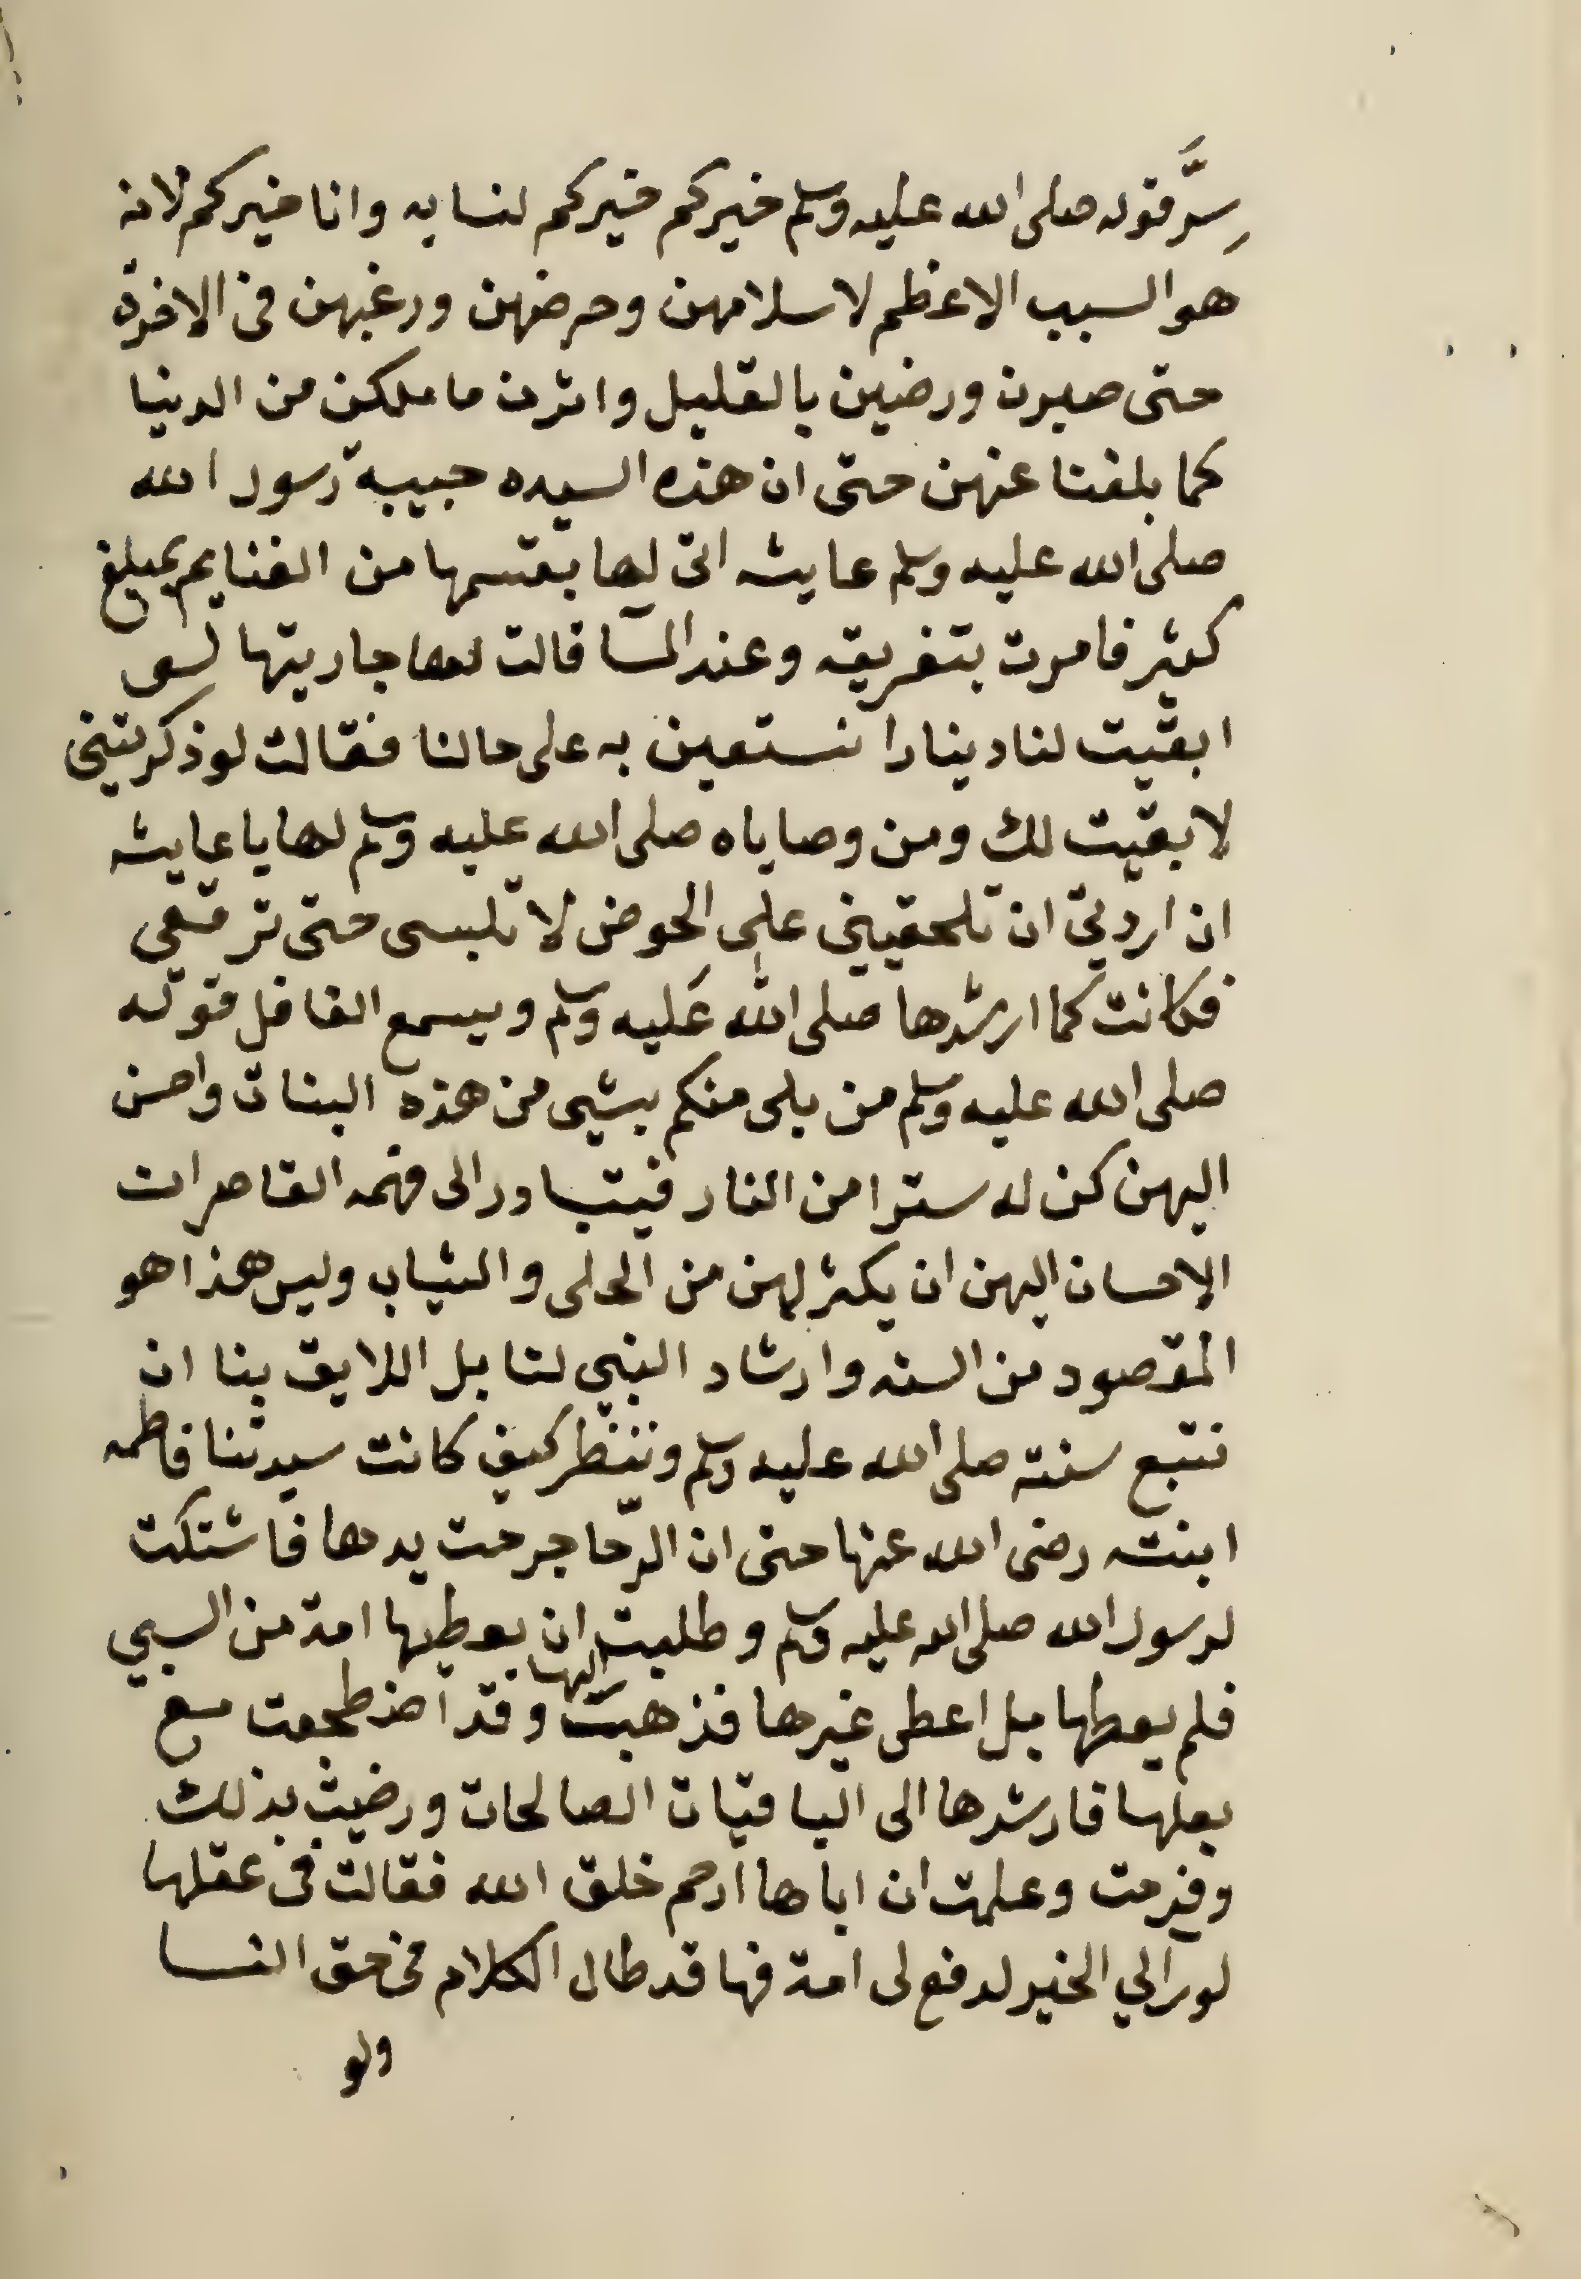 سِرَّ قوله صلى الله عليه وسلم خيركم خيركم لنسايه وانا خيركم لانه
هو السبب الاعظم لاسلامهن وحرضهن ورغبهن فى الاخرة
حتى صبرن ورضين بالقليل واثرن ما ملكن من الدنيا
كما بلغنا عنهن حتى ان هذه السيده حبيبة رسول الله
صلى الله عليه وسلم عايشه اتى لها بقسمها من الغنايم بمبلغ
كثير فامرت بتفريقه وعند المسآ قالت لها جاريتها لو
ابقيت لنا دينارا نستعين به على حالنا فقالت لو ذكرتينى
لابقيت لك ومن وصاياه صلى الله عليه وسلم لها يا عايشه
ان اردتى ان تلحقينى على الحوض لا تلبسى حتى ترقعي
فكانت كما ارشدها صلى الله عليه وسلم ويسمع الغافل قوله
صلى الله عليه وسلم من بلى منكم بشى من هذه البنات واحسن
اليهن كن له سترا من النار فيتبادر الى فهمه القاصر ان
الاحسان اليهن ان يكثر لهن من الحلى والثياب وليس هذا هو
المقصود من السنه وارشاد النبي لنا بل اللايق بنا ان
نتبع سنته صلى الله عليه وسلم وننظر كيف كانت سيدتنا فاطمه
ابنته رضى الله عنها حتى ان الرّحا جرحت يدها فاشتكت
لرسول الله صلى الله عليه وسلم وطلبت ان يعطيها امة من السبي
فلم يعطها بل اعطى غيرها فذهبت اليها وقد اضطجعت مع
بعلها فارشدها الى الباقيات الصالحات ورضيت بذلك
وفرحت وعلمت ان اباها ارحم خلق الله فقالت فى عقلها
لو رآ لي الخير لدفع لى امة فها قد طال الكلام فى حق النسا
ولو